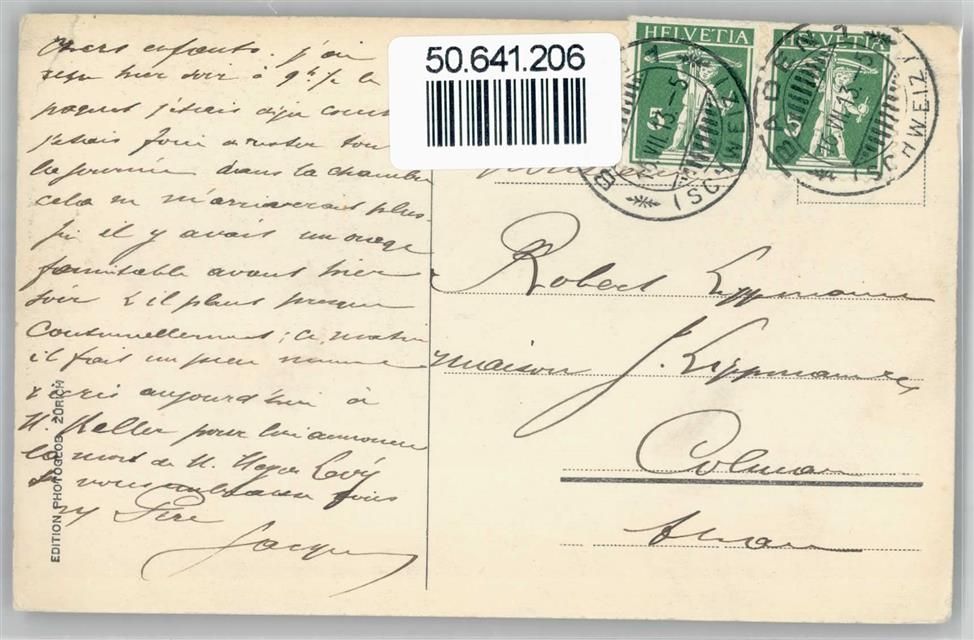 Chers enfants. j'ai
reçu hier soir à 9h 1/2 le
paquet j'étais déjà
j'étais
la journée dans la chambre
cela ne m'arriverait plus.
il y avait un orage
formidable avant hier
soir & il pleut presque
continuellement; ce matin
il fait un peu
écris aujourd'hui à
M. Keller pour lui annoncer
la mort de M. Lévy
Je vous embrasse
Père
Jacques
EDITION PHOTOGLOB ZÜRICH
50.641.206
HELVETIA
HELVETIA
5
5
BADEN
(SCHWEIZ)
VII.13.-5
BADEN
(SCHWEIZ)
VII.13.-5
Monsieur
Robert Lippmann
maison J. Lippmann
Colmar
Alsace